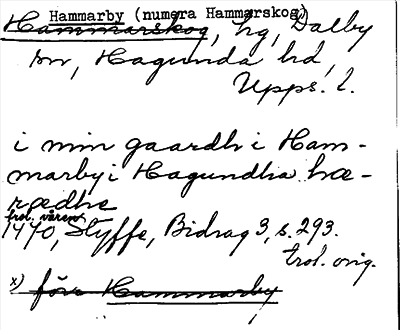 Hammarby (numera Hammarskog)
Hammarskog, hg, Dalby
sn, Hagunda hd,
Upps. l.
i min gaardh i Ham-
marby i Hagundha hæ-
rædhe
trol. våren
1470, Styffe, Bidrag 3, s. 293.
trol. orig.
x) förr Hammarby